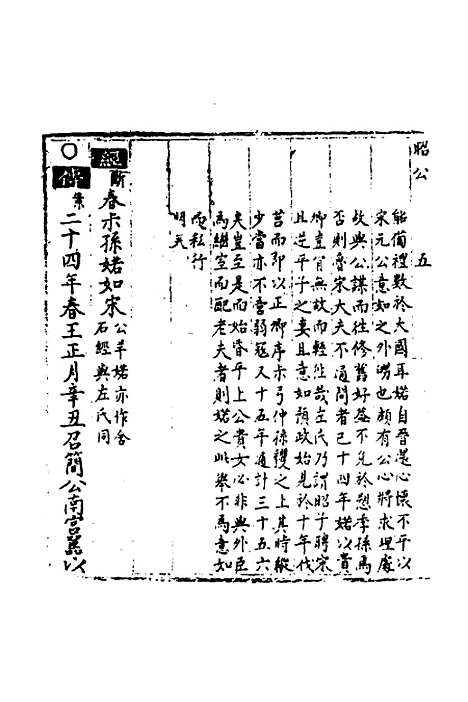 昭公
五
能備禮數於大國耳婼自晉還心懷不平以
宋元公意如之外甥也頗有公心將求理處
故與公謀而往修舊好蓋不免於愬季孫焉
否則魯宋大夫不通問者已十四年婼以貴
卿豈肯無故而輕往哉左氏乃謂昭子聘宋
且逆平子之妻且意如預政始見於十年伐
莒而即以正卿序於弓仲孫貜之上其時縱
少當亦不啻弱冠又十五年通計三十五六
夫豈至是而始昏乎上公貴女必非與外臣
為繼室而配老夫者則婼之此舉不為意如
而私行
明矣
經
斷
春叔孫婼如宋
公羊婼亦作舍
石經與左氏同
傳
集
二十四年春王正月辛丑召簡公南宮嚚以